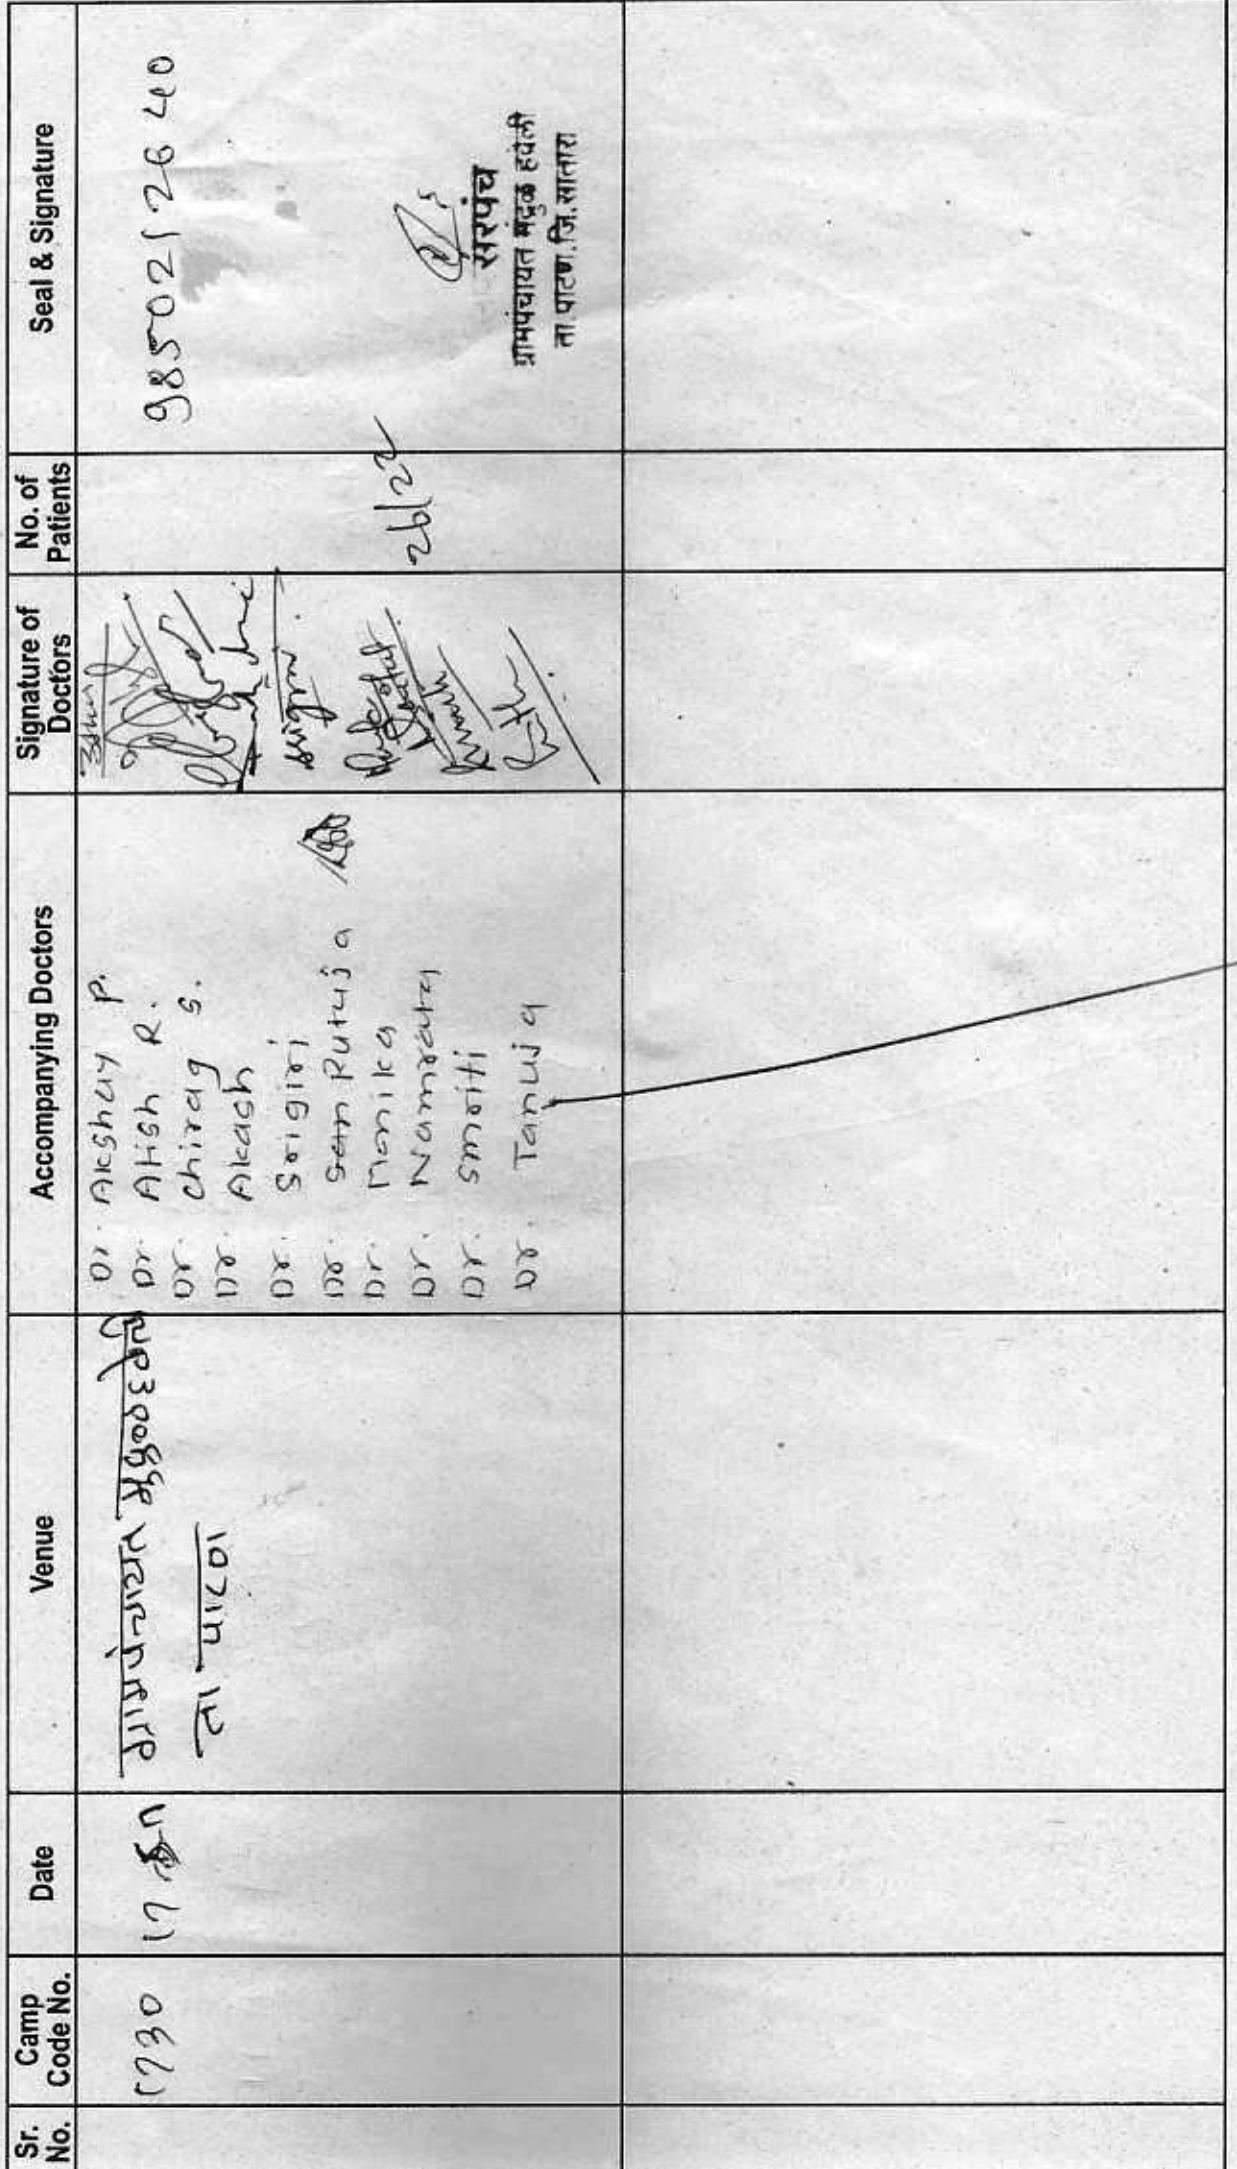 Sr. No.
Camp Code No.
Date
Venue
Accompanying Doctors
Signature of Doctors
No. of Patients
Seal & Signature
1730
17
ग्रामपंचायत
ता पाटण
Dr. Akshay P.
Dr. Atish R.
Dr. Chirag S.
Dr. Akash
Dr. Srigiri
Dr. Rutuja
Dr. Monika
Dr. Namrata
Dr. Smriti
Dr. Tanuja
26/22
9850212640
सरपंच
ग्रामपंचायत मंद्रुळ हवेली
ता.पाटण,जि.सातारा